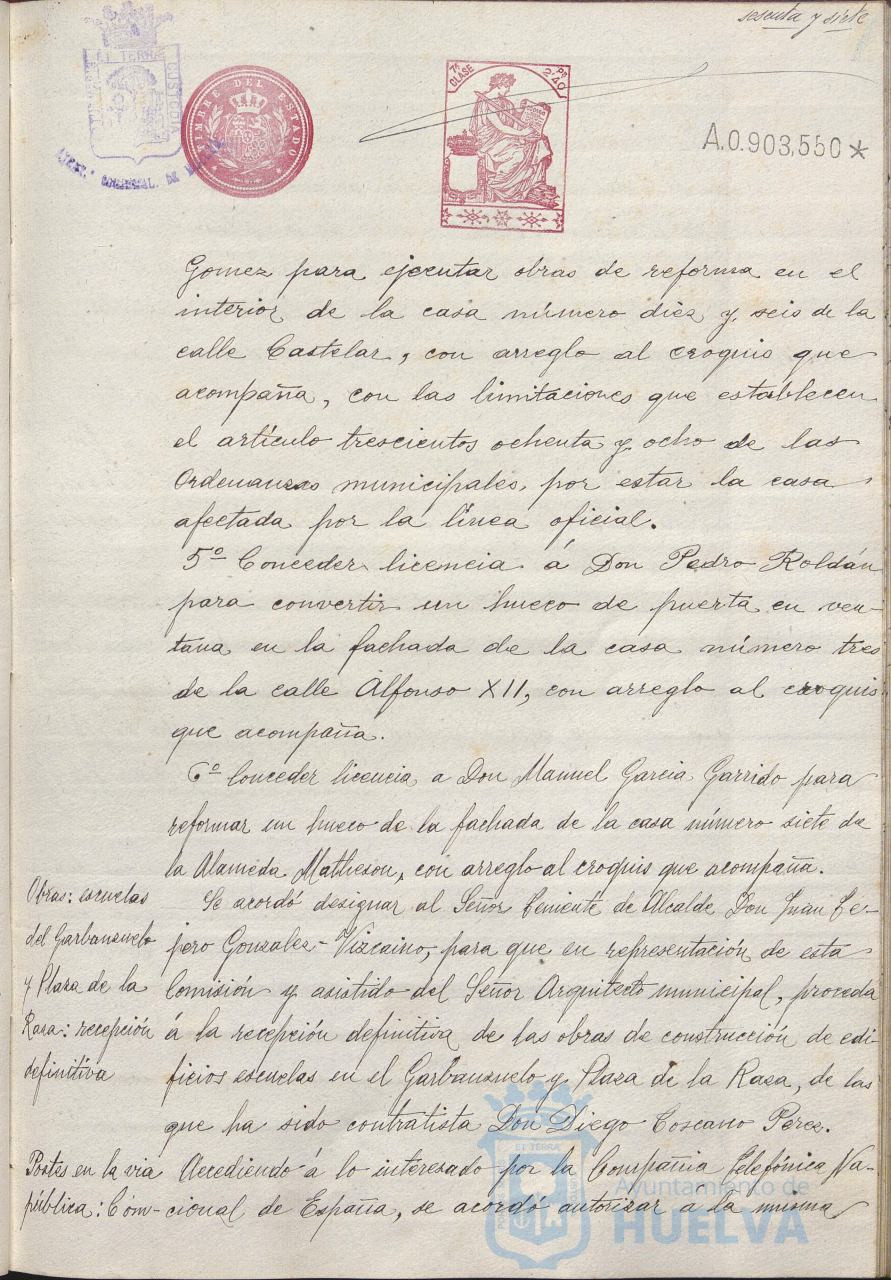 sesenta y siete
ET TERRÆ
CUSTODIA
TIMBRE DEL ESTADO
7ª CLASE
2'40 Pᵗ
A.0.903,550*
Gomez para ejecutar obras de reforma en el
interior de la casa número diez y seis de la
calle Castelar, con arreglo al croquis que
acompaña, con las limitaciones que establecen
el artículo trescientos ochenta y ocho de las
Ordenanzas municipales, por estar la casa
afectada por la línea oficial.
5º Conceder licencia á Don Pedro Roldán
para convertir un hueco de puerta en ven-
tana en la fachada de la casa número tres
de la calle Alfonso XII, con arreglo al croquis
que acompaña.
6º Conceder licencia a Don Manuel Garcia Garrido para
reformar un hueco de la fachada de la casa número siete de
la Alameda Matheson, con arreglo al croquis que acompaña.
Obras: escuelas
del Garbanzuelo
y Plaza de la
Raza: recepción
definitiva
Se acordó designar al Señor Teniente de Alcalde Don Juan Te-
jero Gonzalez-Vizcaino, para que en representación de esta
Comisión y asistido del Señor Arquitecto municipal, proceda
á la recepción definitiva de las obras de construcción de edi-
ficios escuelas en el Garbanzuelo y Plaza de la Raza, de las
que ha sido contratista Don Diego Toscano Perez.
Postes en la via
pública: Com-
Accediendo á lo interesado por la Compañia Telefónica Na-
cional de España, se acordó autorizar a la misma
Ayuntamiento de
HUELVA